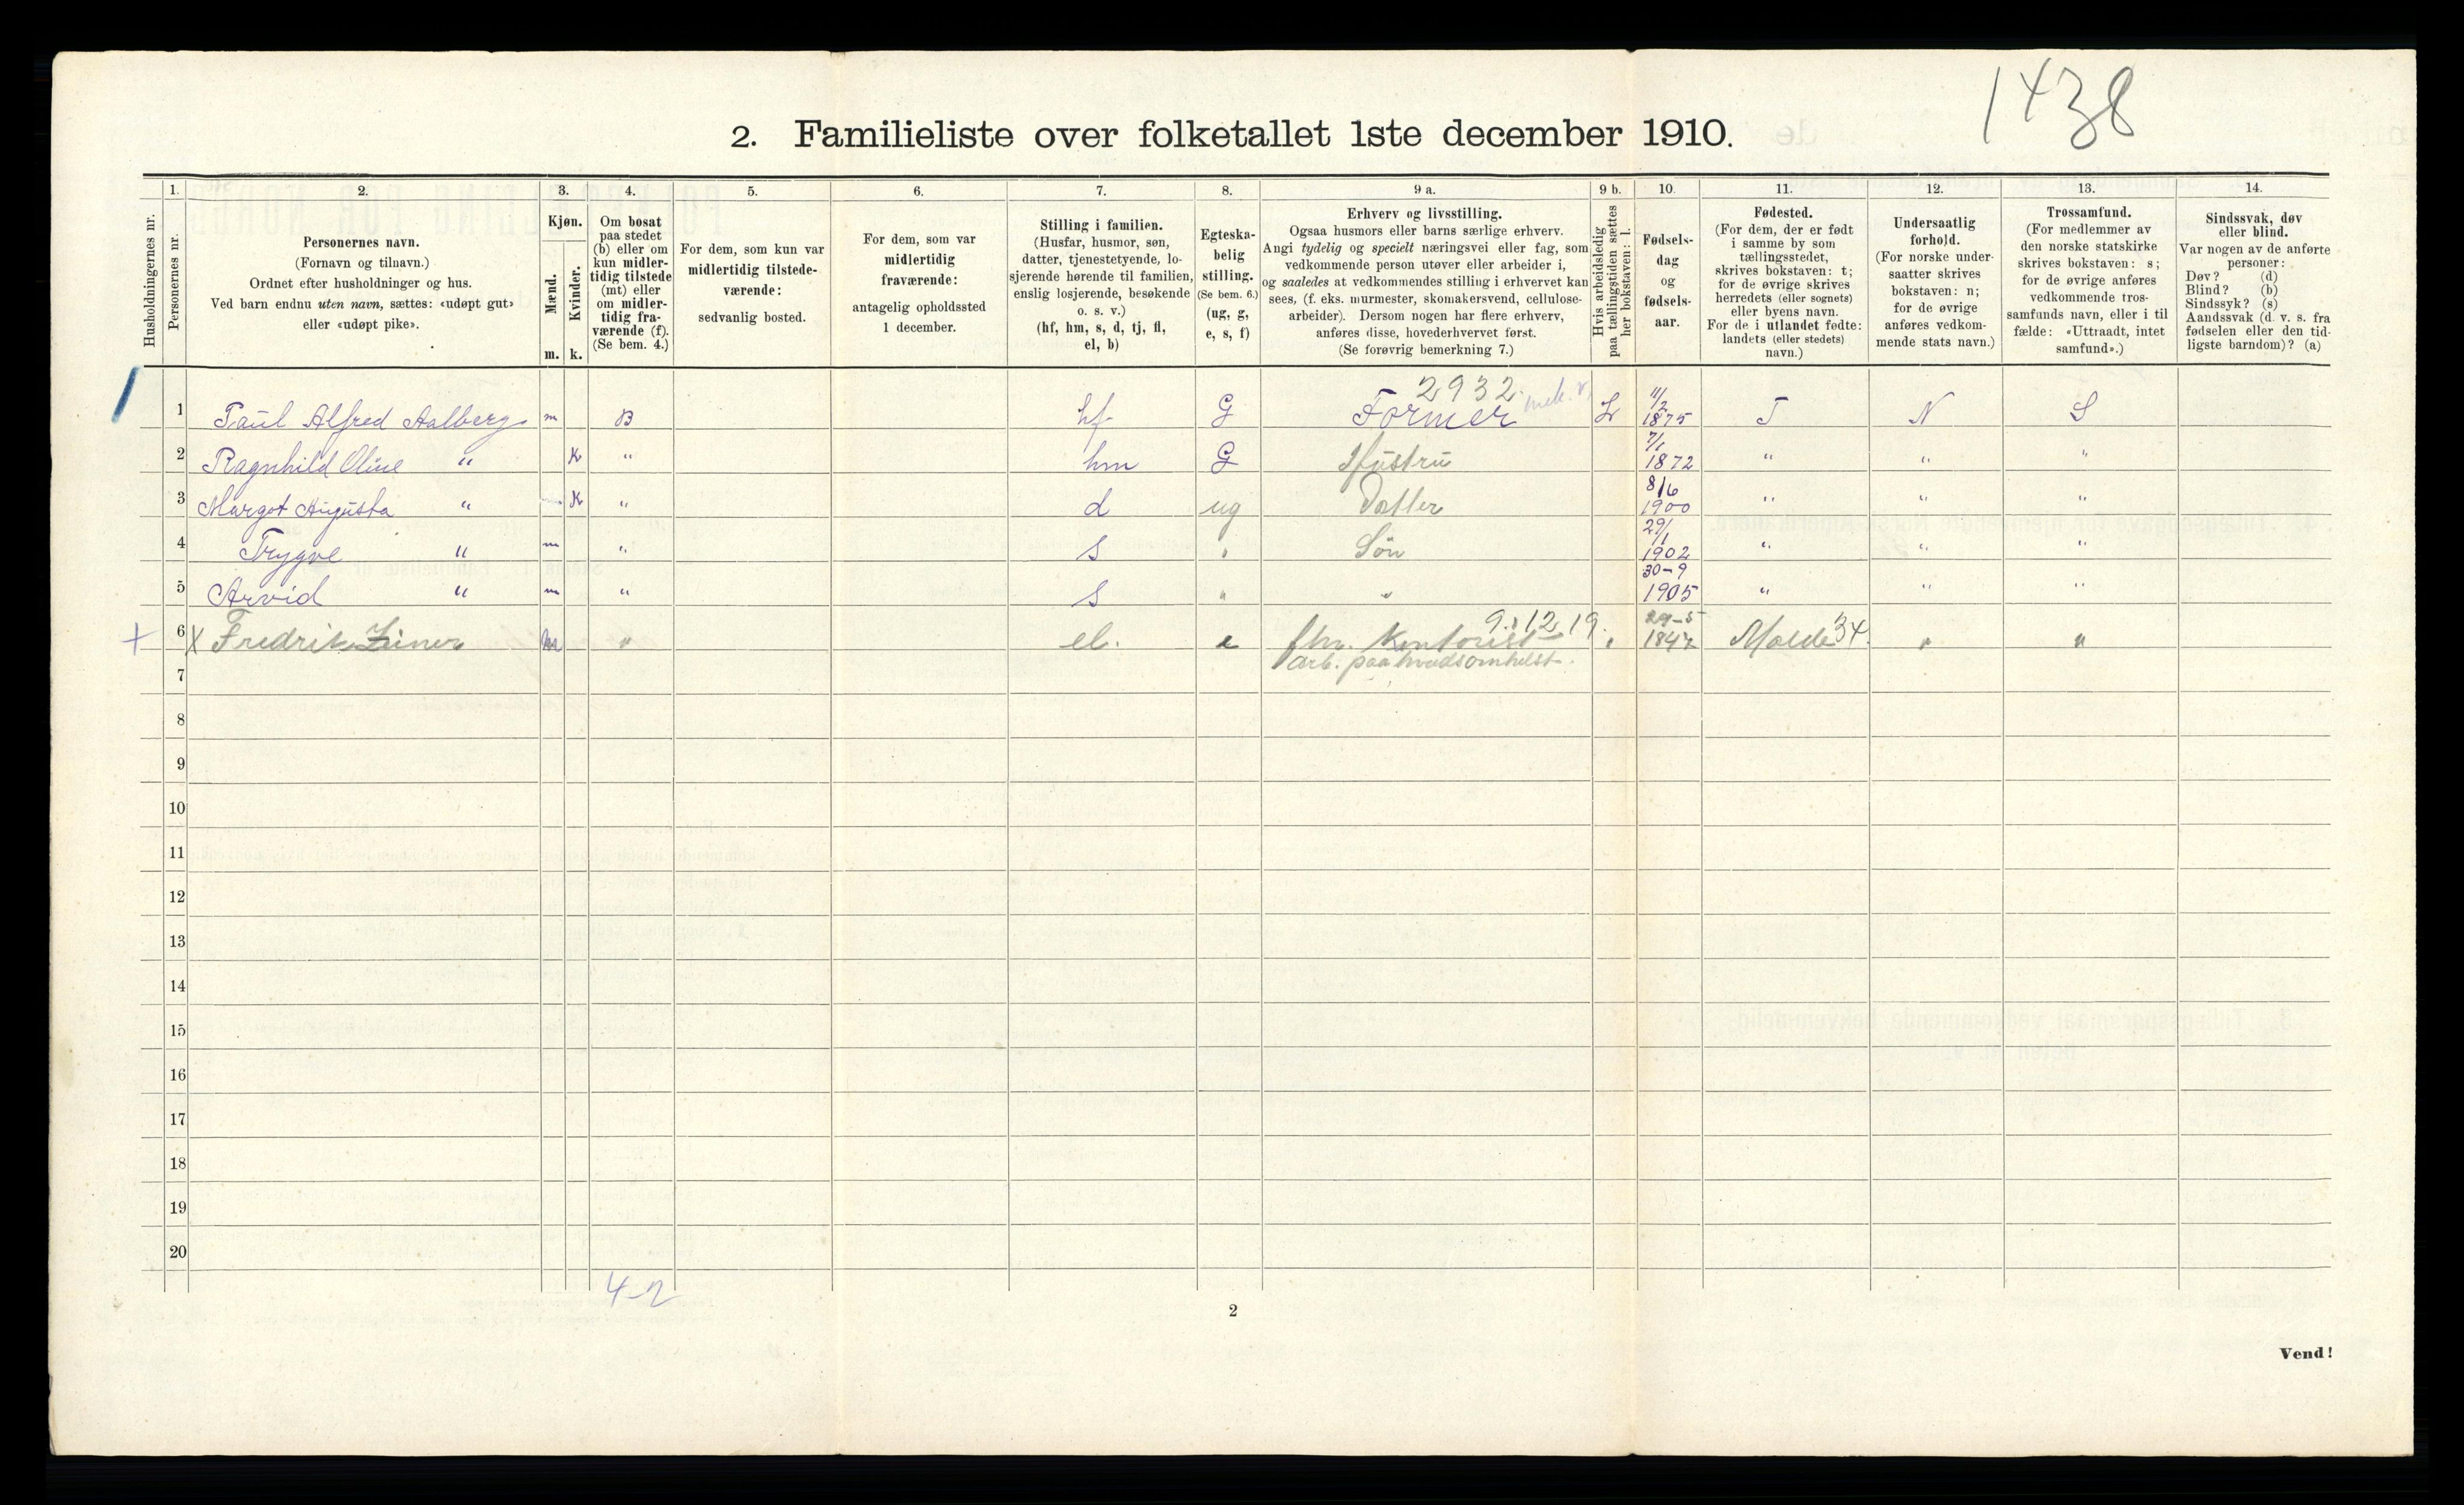 1438
2. Familieliste over folketallet 1ste december 1910.
1. 2. 3. 4. 5. 6. 7. 8. 9 a. 9 b. 10. 11. 12. 13. 14.
Husholdningernes nr.
Personernes nr.
Personernes navn.
(Fornavn og tilnavn.)
Ordnet efter husholdninger og hus.
Ved barn endnu uten navn, sættes: «udøpt gut»
eller «udøpt pike».
Kjøn.
Mænd.
Kvinder.
m. k.
Om bosat
paa stedet
(b) eller om
kun midler-
tidig tilstede
(mt) eller
om midler-
tidig fra-
værende (f).
(Se bem. 4.)
For dem, som kun var
midlertidig tilstede-
værende:
sedvanlig bosted.
For dem, som var
midlertidig
fraværende:
antagelig opholdssted
1 december.
Stilling i familien.
(Husfar, husmor, søn,
datter, tjenestetyende, lo-
sjerende hørende til familien,
enslig losjerende, besøkende
o. s. v.)
(hf, hm, s, d, tj, fl,
el, b)
Egteska-
belig
stilling.
(Se bem. 6.)
(ug, g,
e, s, f)
Erhverv og livsstilling.
Ogsaa husmors eller barns særlige erhverv.
Angi tydelig og specielt næringsvei eller fag, som
vedkommende person utøver eller arbeider i,
og saaledes at vedkommendes stilling i erhvervet kan
sees, (f. eks. murmester, skomakersvend, cellulose-
arbeider). Dersom nogen har flere erhverv,
anføres disse, hovederhvervet først.
(Se forøvrig bemerkning 7.)
Hvis arbeidsledig
paa tællingstiden sættes
her bokstaven: l.
Fødsels-
dag
og
fødsels-
aar.
Fødested.
(For dem, der er født
i samme by som
tællingsstedet,
skrives bokstaven: t;
for de øvrige skrives
herredets (eller sognets)
eller byens navn.
For de i utlandet fødte:
landets (eller stedets)
navn.)
Undersaatlig
forhold.
(For norske under-
saatter skrives
bokstaven: n;
for de øvrige
anføres vedkom-
mende stats navn.)
Trossamfund.
(For medlemmer av
den norske statskirke
skrives bokstaven: s;
for de øvrige anføres
vedkommende tros-
samfunds navn, eller i til
fælde: «Uttraadt, intet
samfund».)
Sindssvak, døv
eller blind.
Var nogen av de anførte
personer:
Døv? (d)
Blind? (b)
Sindssyk? (s)
Aandssvak (d. v. s. fra
fødselen eller den tid-
ligste barndom)? (a)
2932 mek. v.
1 Paul Alfred Aalberg m B hf G Former L 11/2 1875 T N S
2 Ragnhild Oline " K " hm G Hustru 7/1 1872 " " "
3 Margot Augusta " K " d ug Datter 8/6 1900 " " "
4 Trygve " m " S " Sön 29/1 1902 " " "
5 Arvid " m " S " " 30-9 1905 " " "
9.12.19.
+ 6 X Fredrik m " el. e fhv. Kontorist " 29-5 Molde 34. " "
7 arb. paa hvadsomhelst.
8
9
10
11
12
13
14
15
16
17
18
19
20
4-2
2
Vend!